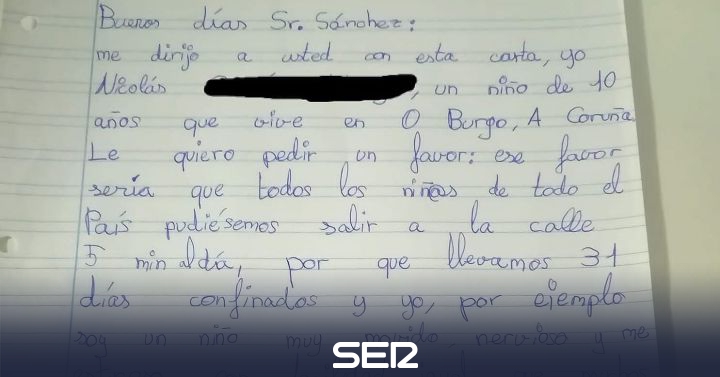 Buenos días Sr. Sánchez:
me dirijo a usted con esta carta, yo
Nicolás , un niño de 10
años que vive en O Burgo, A Coruña
Le quiero pedir un favor: ese favor
sería que todos los niños de todo el
País pudiésemos salir a la calle
5 min al día, por que llevamos 31
días confinados y yo, por ejemplo
soy un niño muy movido, nervioso y me
SER